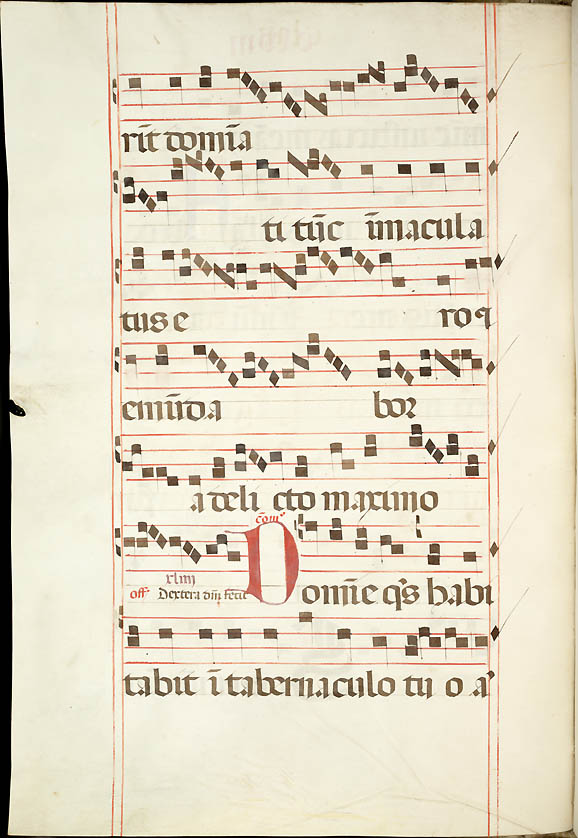 rīt domīa
ti tūc īmacula
tus e ro ꝙ
emūda bor
a deli cto maximo
cōmº
xliiij
off Dextera dn̄i fecit
Domīe qͥs habi
tabit ī tabernaculo tu o a'